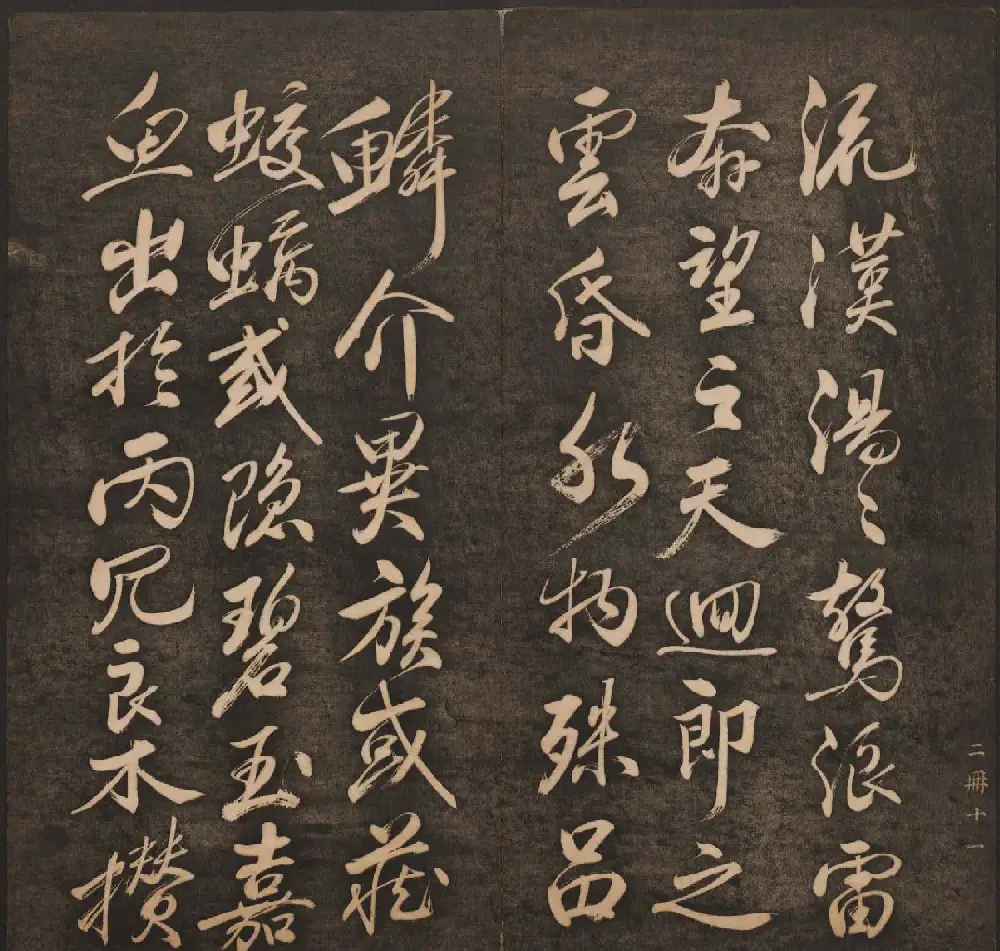 二冊十一
流漢湯〻驚浪雷
奔望之天迴即之
雲昏水物殊品
鱗介異族或藏
蛟螭或隱碧玉嘉
魚出於丙穴良木攢